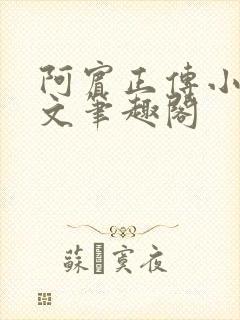 阿賓正傳小
文筆趣閣
蘇寞夜